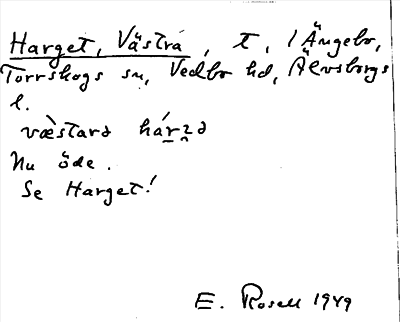 Harget, Västra, t, i Ängebo,
Torrskogs sn, Vedbo hd, Älvsborgs
l.
væ̀starə hárʐə
Nu öde.
Se Harget!
E. Rosell 1949